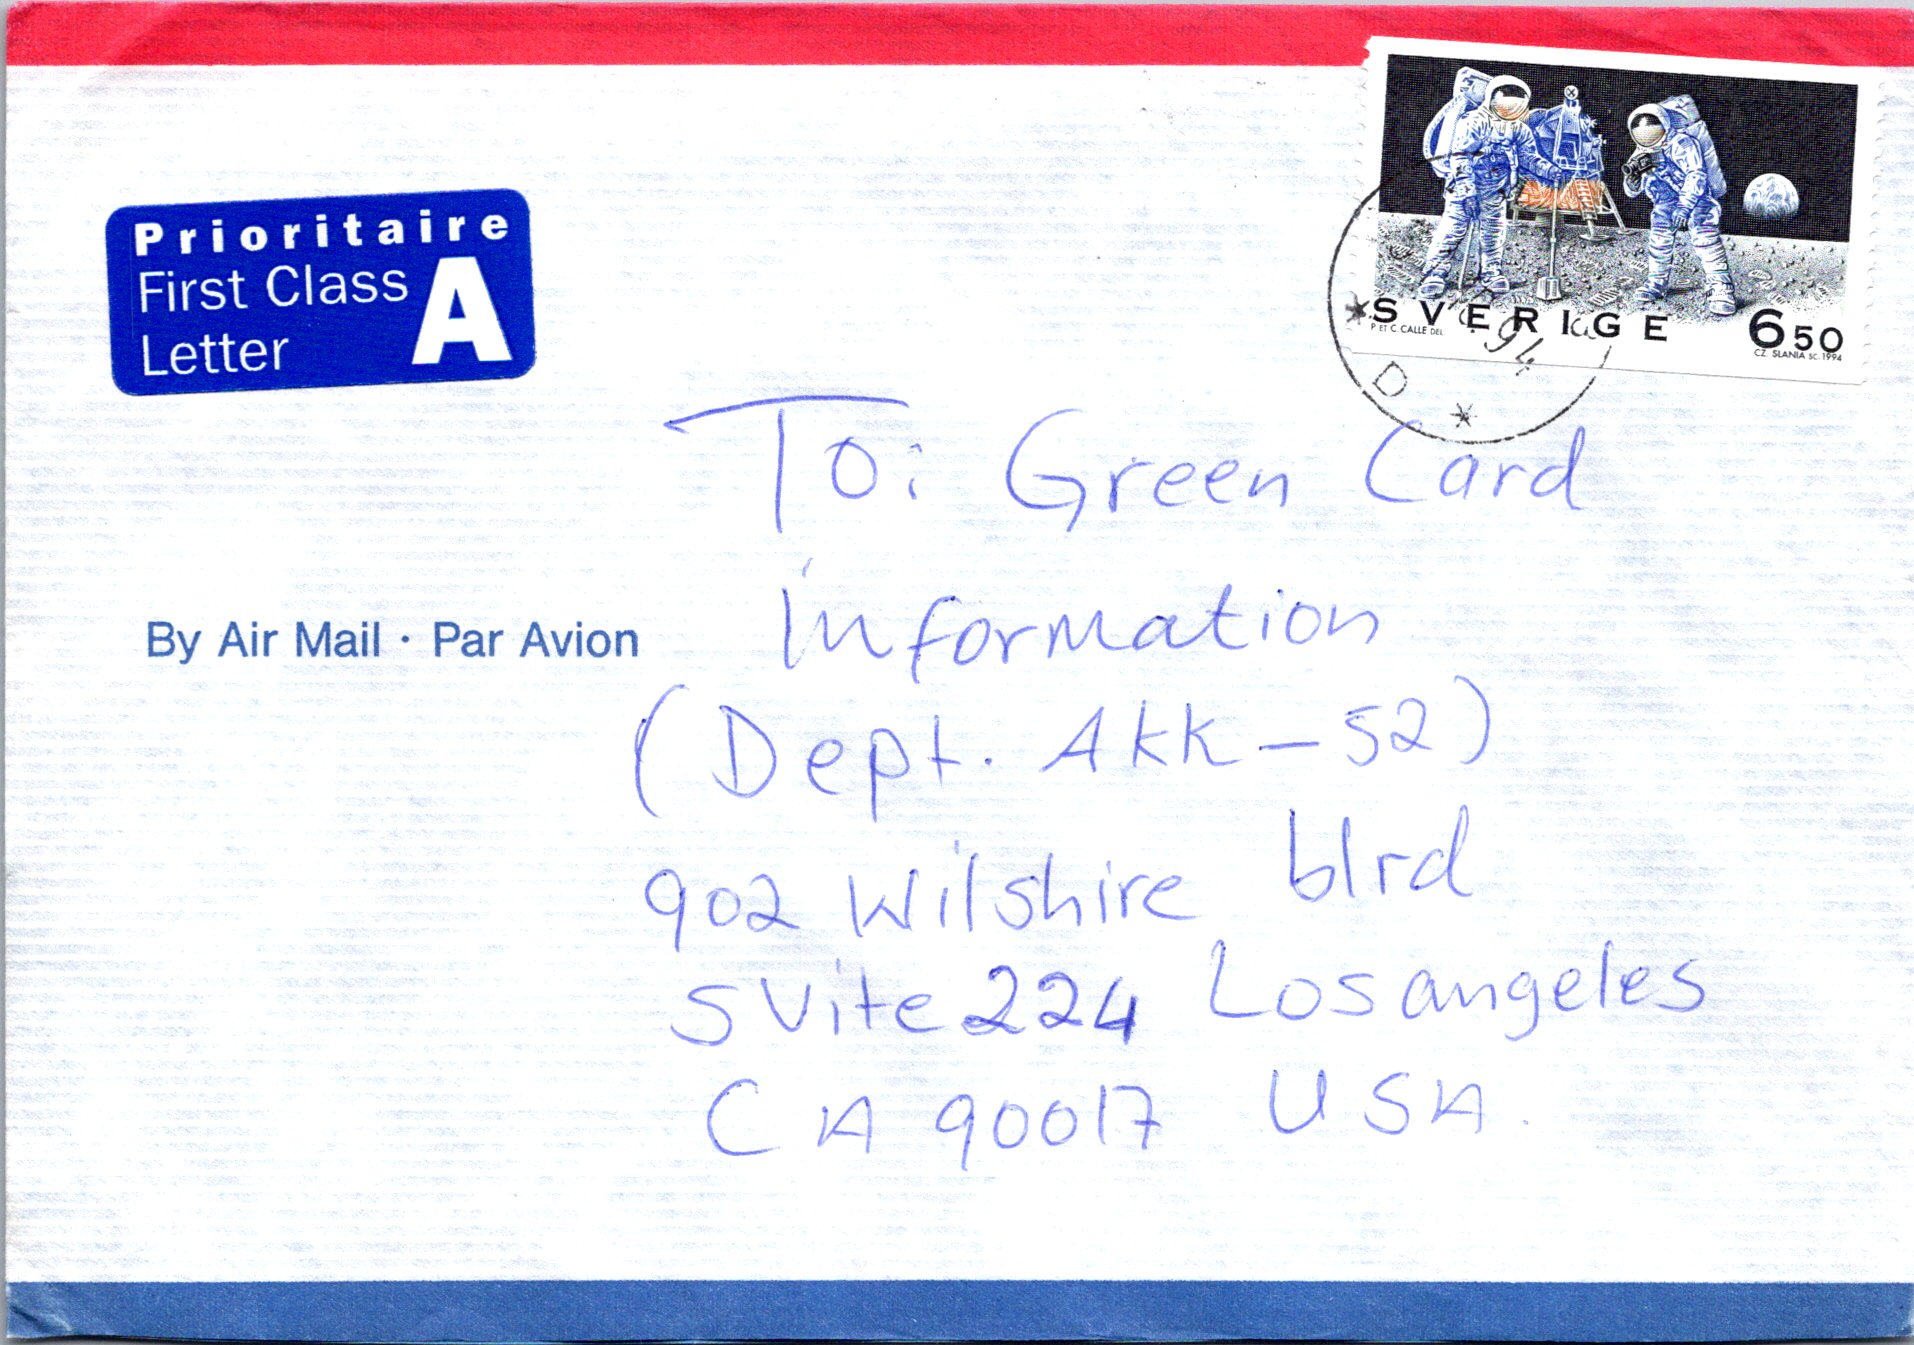 Prioritaire
First Class
Letter
A
SVERIGE 650
P ET C. CALLE DEL.
CZ. SLANIA SC. 1994
94
D
By Air Mail · Par Avion
To: Green Card
Information
(Dept. Akk-52)
902 Wilshire blrd
SUite 224 Los angeles
CA 90017 USA.